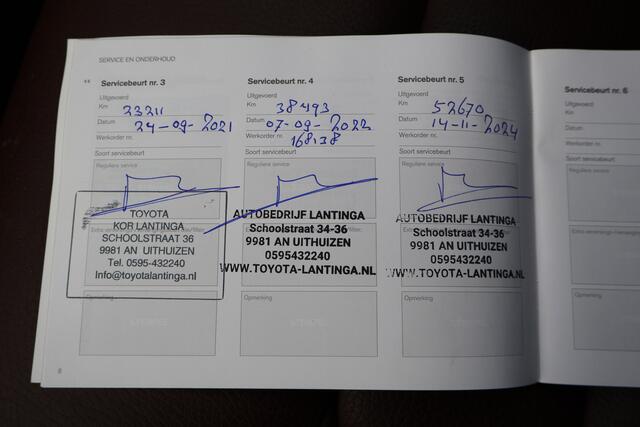 SERVICE EN ONDERHOUD
Servicebeurt nr. 3
Uitgevoerd
Km 23211
Datum 24-09-2021
Werkorder nr.
Soort servicebeurt
Reguliere service
TOYOTA
KOR LANTINGA
SCHOOLSTRAAT 36
9981 AN UITHUIZEN
Tel. 0595-432240
Info@toyotalantinga.nl
Opmerking
Servicebeurt nr. 4
Uitgevoerd
Km 38493
Datum 07-09-2022
Werkorder nr. 168138
Soort servicebeurt
Reguliere service
AUTOBEDRIJF LANTINGA
Schoolstraat 34-36
9981 AN UITHUIZEN
0595432240
WWW.TOYOTA-LANTINGA.NL
Opmerking
Servicebeurt nr. 5
Uitgevoerd
Km 52670
Datum 14-11-2024
Werkorder nr.
Soort servicebeurt
Reguliere service
AUTOBEDRIJF LANTINGA
Schoolstraat 34-36
9981 AN UITHUIZEN
0595432240
WWW.TOYOTA-LANTINGA.NL
Opmerking
8
Servicebeurt nr. 6
Uitgevoerd
Km
Datum
Werkorder nr.
Soort servicebeurt
Reguliere service
Opmerking